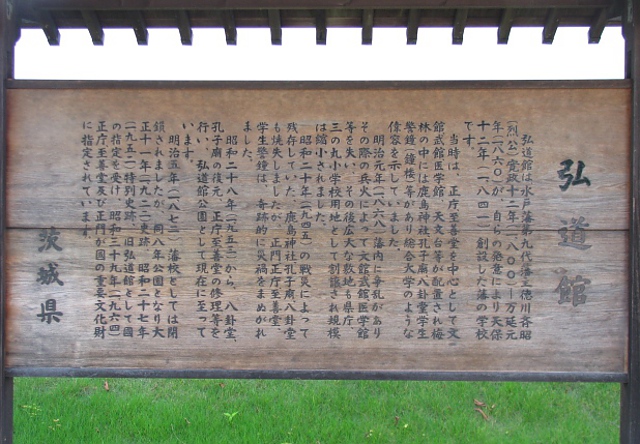 弘道館
弘道館は水戸藩第九代藩主徳川斉昭
(烈公)(寛政十二年(一八〇〇)―万延元
年(一八六〇)が、自らの発意により天保
十二年(一八四一)創設した藩の学校
です。
当時は、正庁至善堂を中心として文
館武館医学館、天文台等が配置され梅
林の中には鹿島神社孔子廟八卦堂学生
警鐘(鐘楼)等があり総合大学のような
偉容を示していました。
明治元年(一八六八)藩内に争乱があり
その際の兵火によって文館武館医学館
等を失い、その後広大な敷地も県庁、
三の丸小学校用地として割譲され規模
は縮小されました。
昭和二十年(一九四五)の戦災によって
残存していた、鹿島神社孔子廟八卦堂
も焼失しましたが、正門正庁至善堂、
学生警鐘は、奇跡的に災禍をまぬがれ
ました。
昭和二十八年(一九五三)から、八卦堂、
孔子廟の復元、正庁至善堂の修理等を
行い、弘道館公園として現在に至って
います。
明治五年(一八七二)藩校としては閉
鎖されましたが、同八年公園となり大
正十一年(一九二二)史跡、昭和二十七年
(一九五二)特別史跡「旧弘道館」として国
の指定を受け、昭和三十九年(一九六四)
正庁至善堂及び正門が国の重要文化財
に指定されています。
茨城県